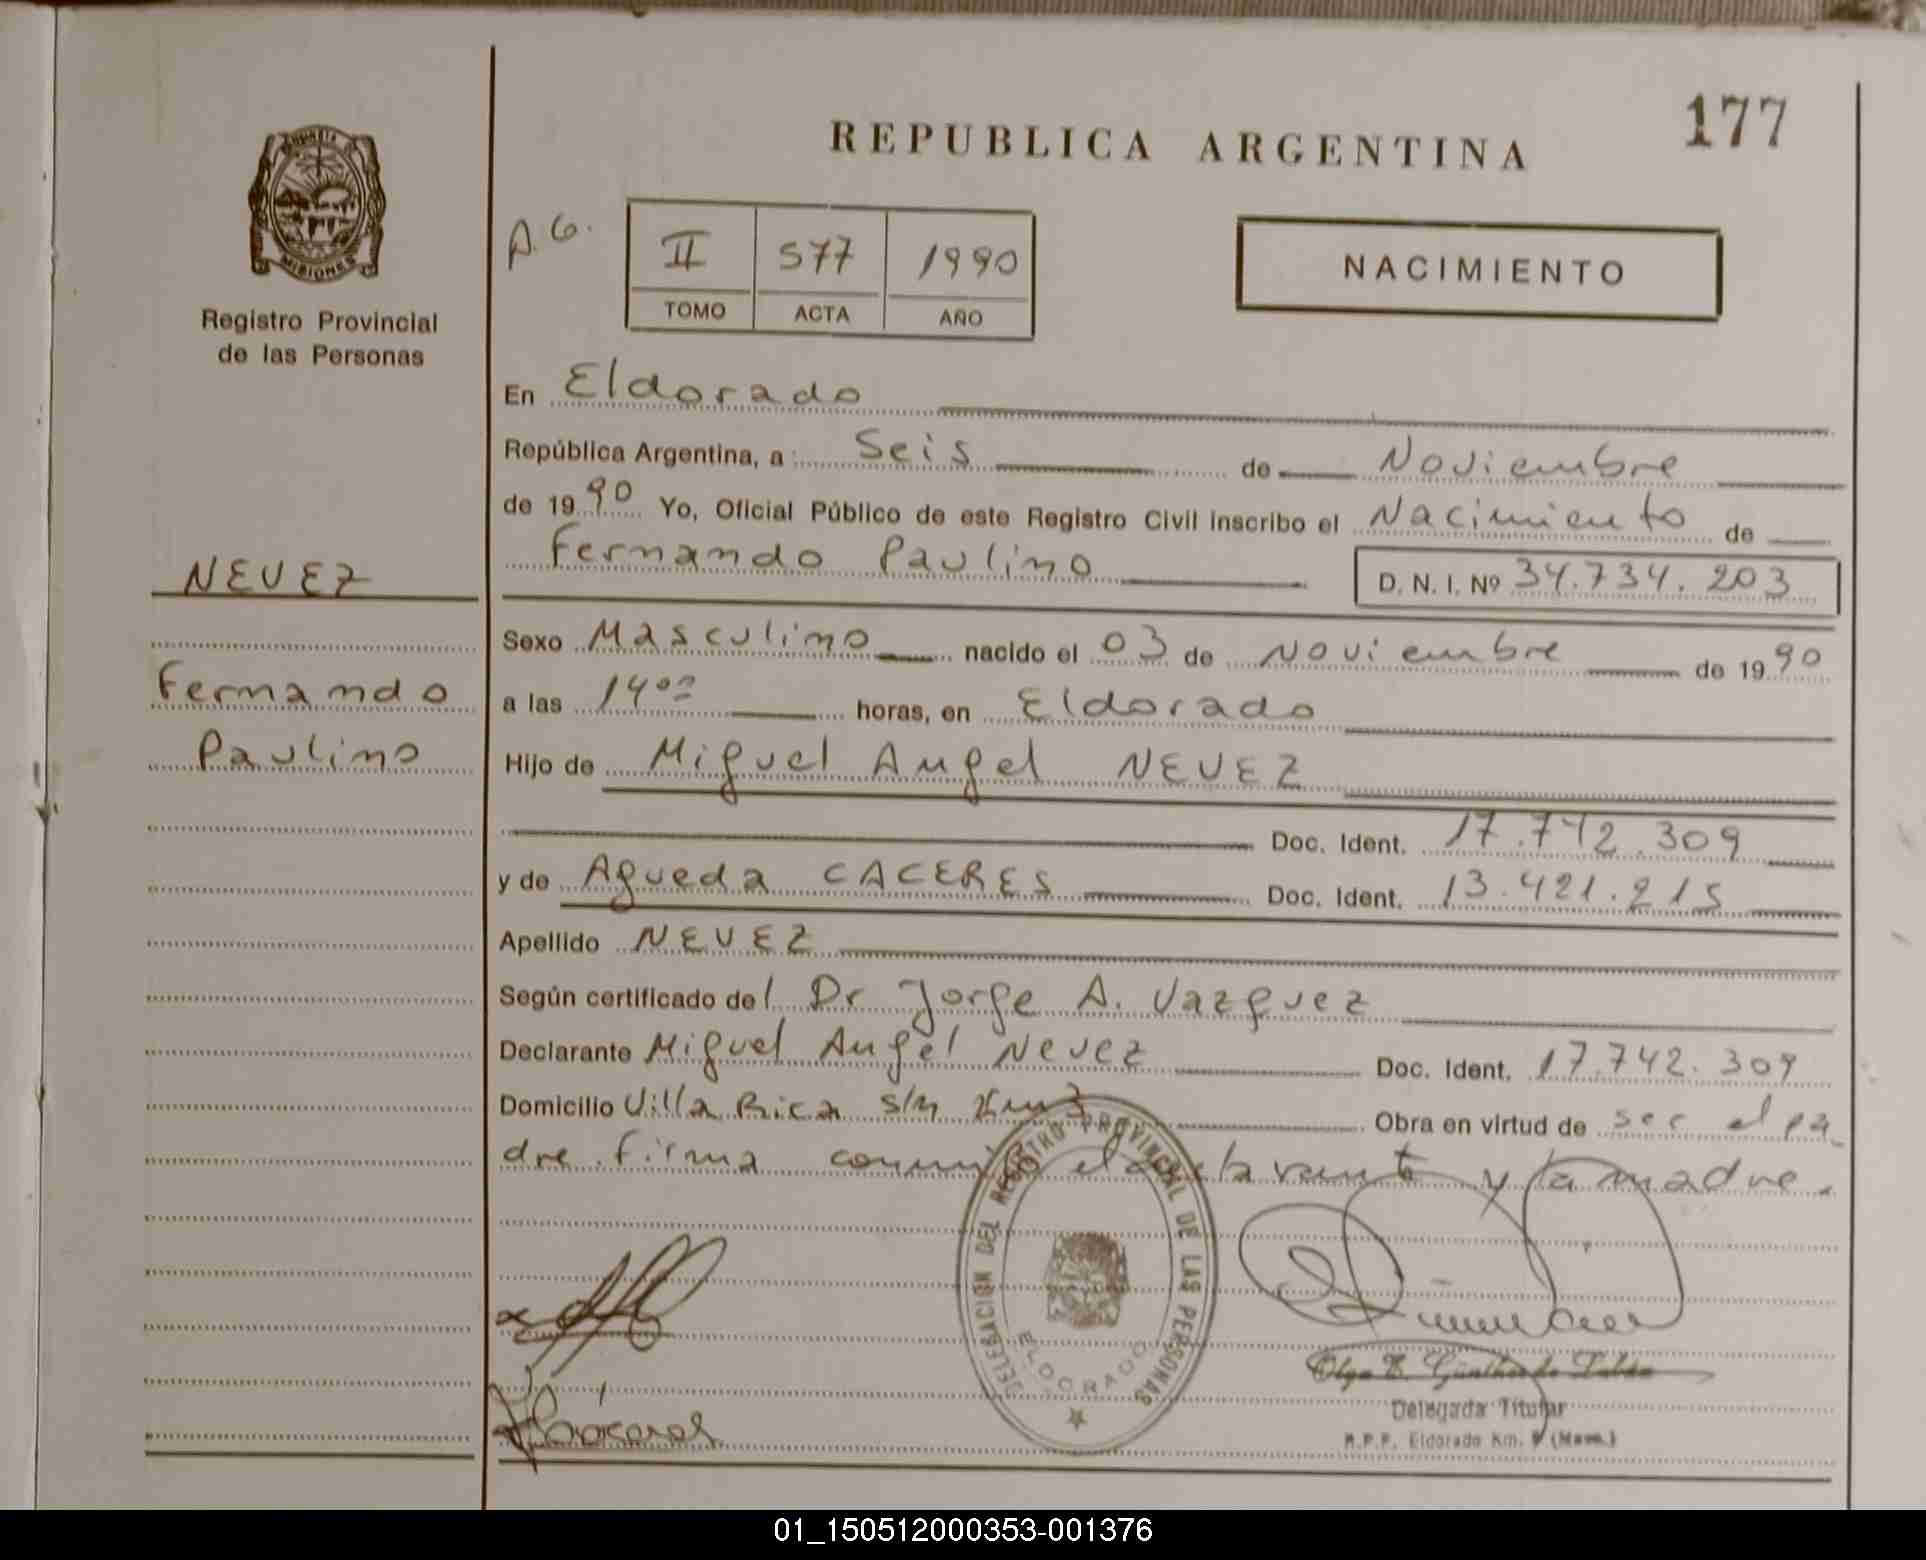 177
REPUBLICA ARGENTINA
MISIONES
Registro Provincial
de las Personas
A.G.
II 577 1990
TOMO ACTA AÑO
NACIMIENTO
En Eldorado
República Argentina, a Seis de Noviembre
de 1990 Yo, Oficial Público de este Registro Civil inscribo el Nacimiento de
Fernando Paulino D. N. I. Nº 34.734.203
NEVEZ
Fernando
Paulino
Sexo Masculino nacido el 03 de Noviembre de 1990
a las 14 horas, en Eldorado
Hijo de Miguel Angel NEVEZ
Doc. Ident. 17.742.309
y de Agueda CACERES Doc. Ident. 13.421.215
Apellido NEVEZ
Según certificado del Dr Jorge A. Vazquez
Declarante Miguel Angel Nevez Doc. Ident. 17.742.309
Domicilio Villa Rica s/n Km 3 Obra en virtud de ser el pa
dre. firma el declarante y la madre.
DELEGACION DEL REGISTRO PROVINCIAL DE LAS PERSONAS
ELDORADO
Olga E. Günther de
Delegada Titular
R.P.P. Eldorado Km. 9 (Mnes.)
01_150512000353-001376